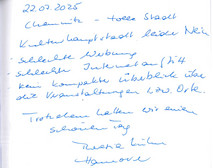 22.07.2025
Chemnitz - tolle Stadt
Kulturhauptstadt leider Nein
schlechte Werbung
schlechte
kein kompakter Überblick über
die Veranstaltungen
Trotzdem hatten wir einen
schönen Tag
Hannover